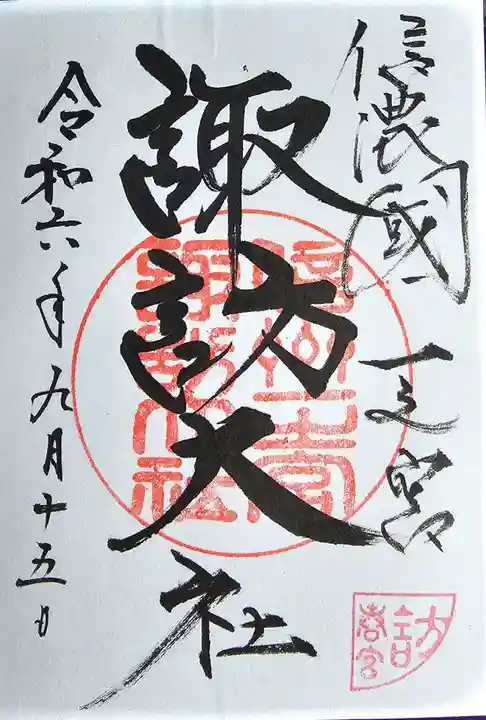 信濃國一之宮
諏訪大社
令和六年九月十五日
信州一之宮
諏訪大社
訪
春宮